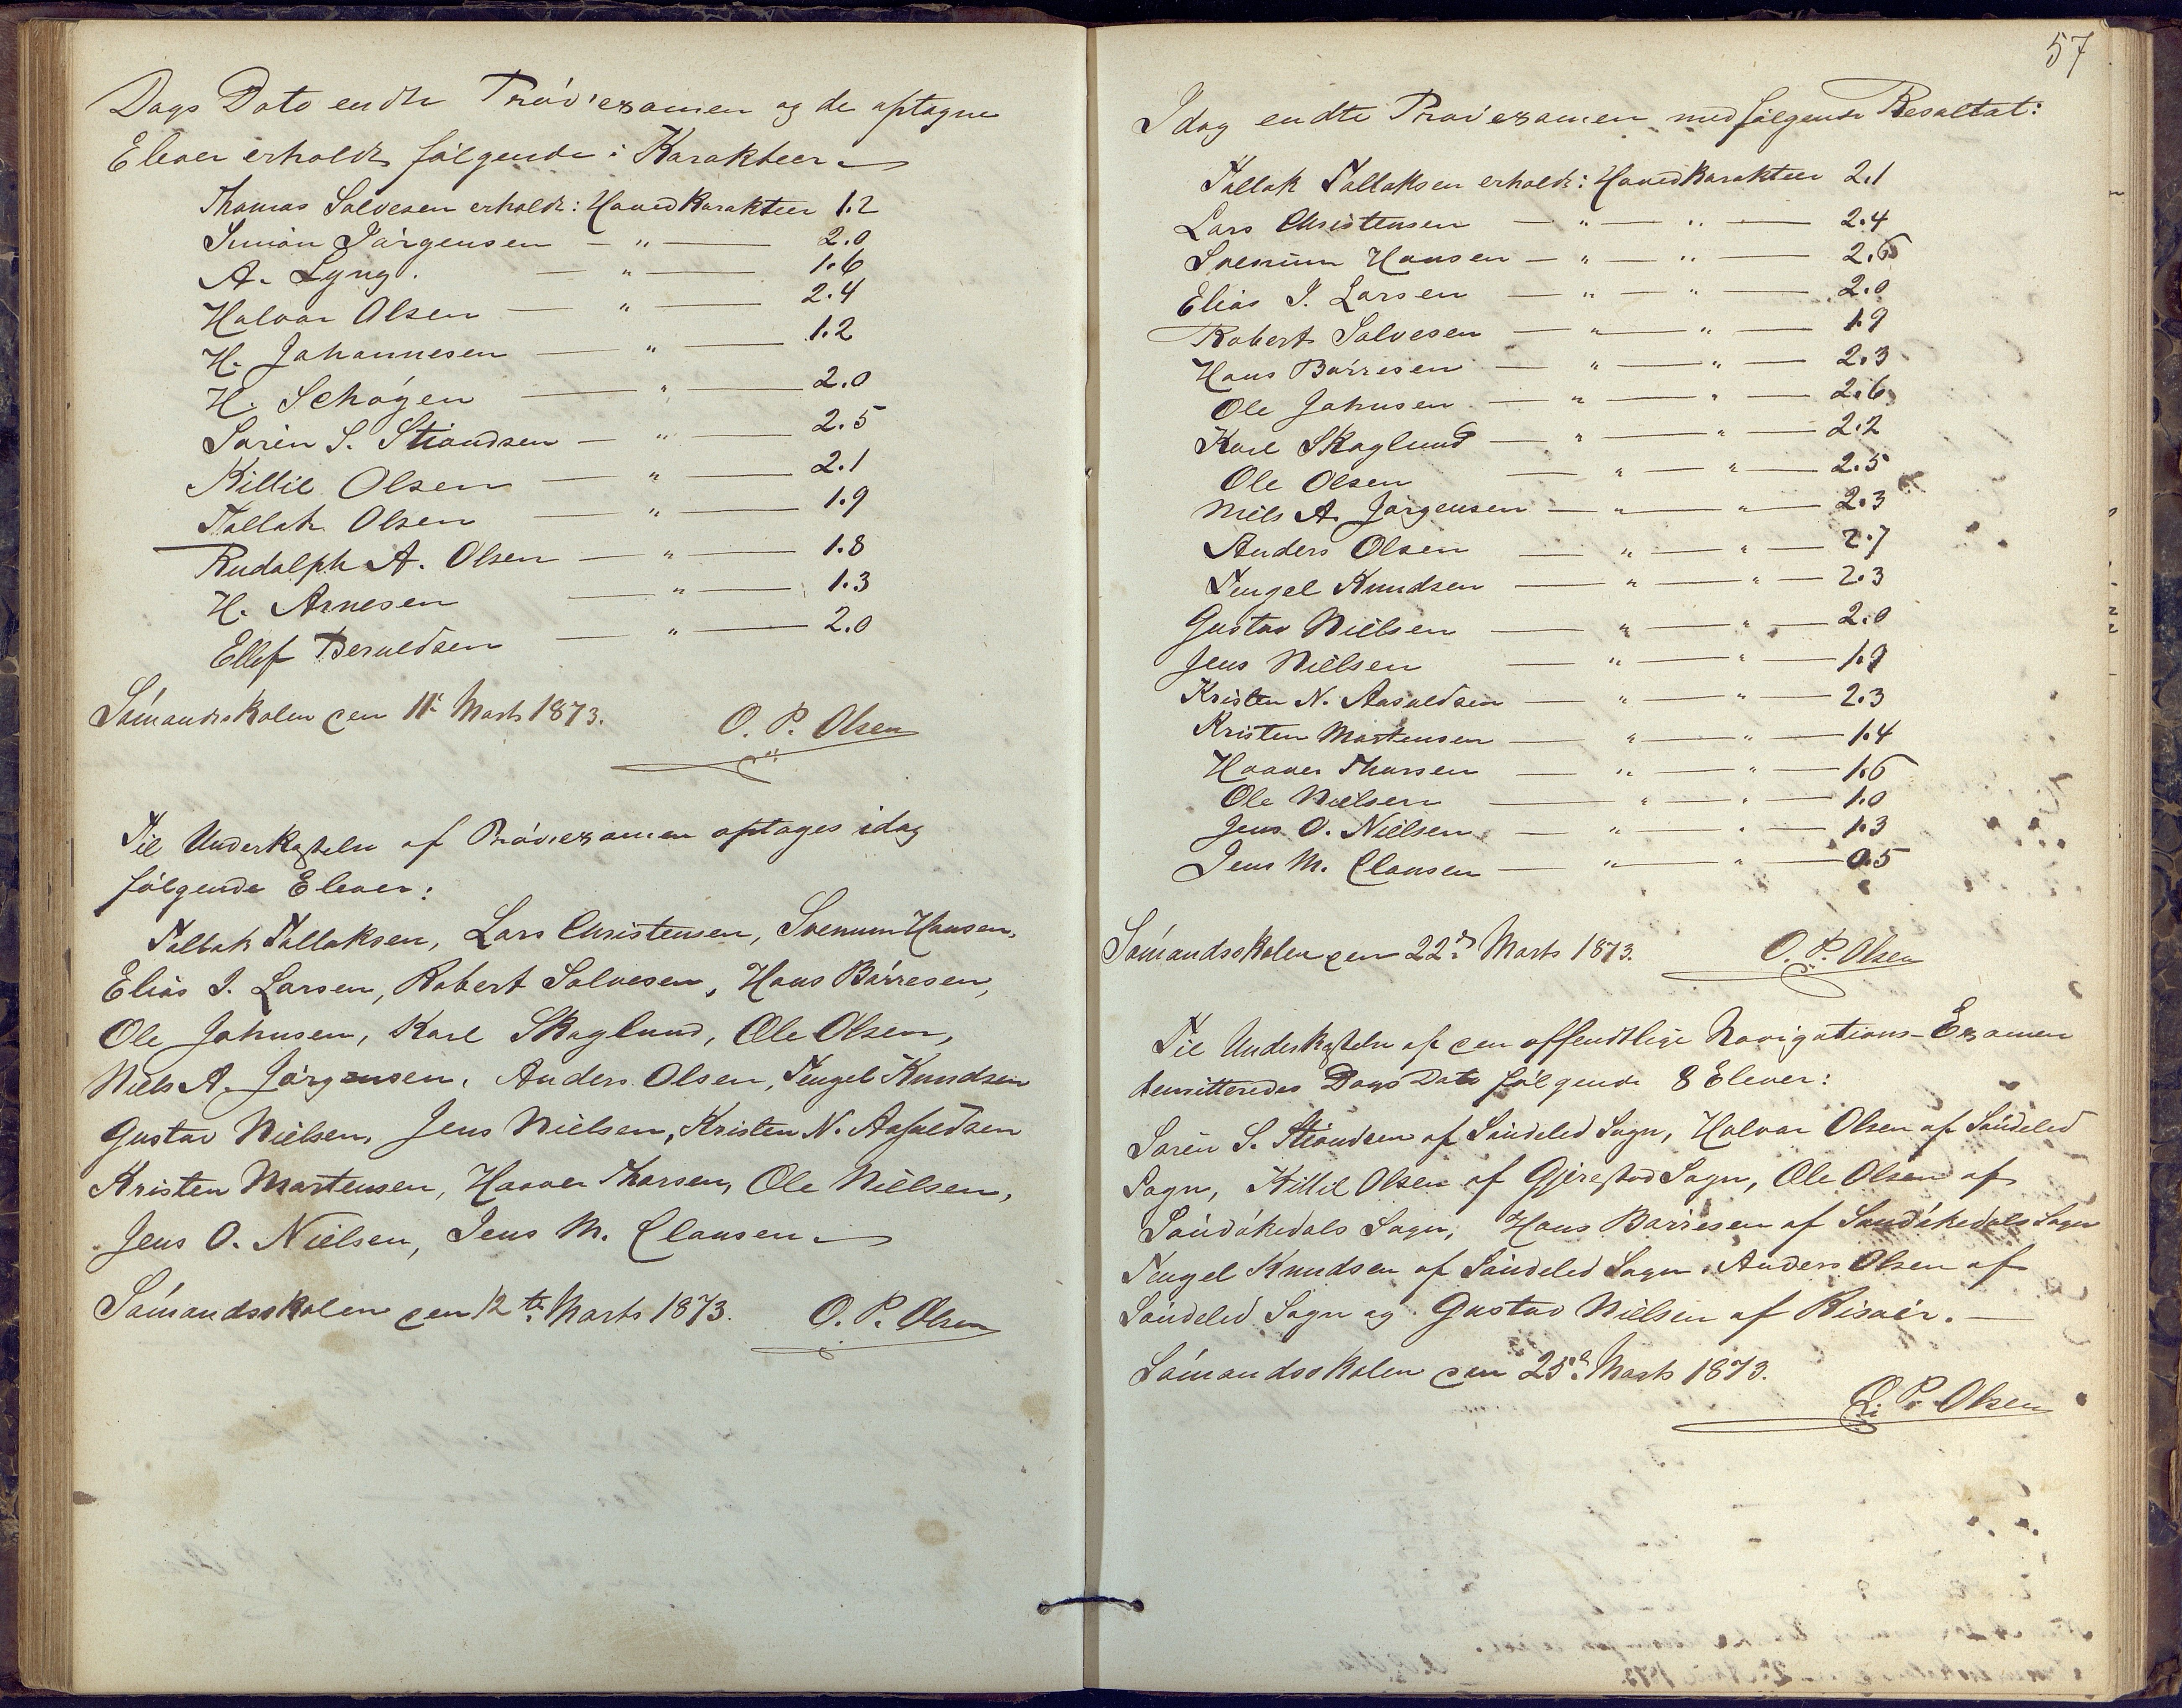 Dags Dato endte Prøveexamen og de optagne
Elever erholdt følgende: Karakteer
Thomas Salvesen erholdt: Hovedkarakteer 1.2
Simon Jørgensen — " — 2.0
A. Lyng. — " — 1.6
Halvar Olsen — " — 2.4
H. Johannesen — " — 1.2
H. Schøyen — " — 2.0
Søren S. Strandsen — " — 2.5
Killil Olsen — " — 2.1
Tallak Olsen — " — 1.9
Rudolph A. Olsen — " — 1.8
H. Arnesen — " — 1.3
Ellef Beruldsen — " — 2.0
Sømandsskolen den 11te Marts 1873.
O. P. Olsen
Til Underkastelse af Prøveexamen optages idag
følgende Elever:
Tallak Tallaksen, Lars Christensen, Svenum Hansen,
Elias I. Larsen, Robert Salvesen, Hans Børresen,
Ole Johnsen, Karl Skaglund, Ole Olsen,
Niels A. Jørgensen, Anders Olsen, Tengel Knudsen
Gustav Nielsen, Jens Nielsen, Kristen N. Aasuldsen
Kristen Mortensen, Haaver Thorsen, Ole Nielsen,
Jens O. Nielsen, Jens M. Clausen
Sømandsskolen den 12te Marts 1873. O. P. Olsen
57
Idag endte Prøveexamen med følgende Resultat:
Tallak Tallaksen erholdt: Hovedkarakteer 2.1
Lars Christensen — " — " — 2.4
Svenum Hansen — " — " — 2.6
Elias I. Larsen — " — " — 2.0
Robert Salvesen — " — " — 1.9
Hans Børresen — " — " — 2.3
Ole Johnsen — " — " — 2.6
Karl Skaglund — " — " — 2.2
Ole Olsen — " — " — 2.5
Niels A. Jørgensen — " — " — 2.3
Anders Olsen — " — " — 2.7
Tengel Knudsen — " — " — 2.3
Gustav Nielsen — " — " — 2.0
Jens Nielsen — " — " — 1.9
Kristen N. Aasuldsen — " — " — 2.3
Kristen Mortensen — " — " — 1.4
Haaver Thorsen — " — " — 1.6
Ole Nielsen — " — " — 1.0
Jens O. Nielsen — " — " — 1.3
Jens M. Clausen — " — " — 0.5
Sømandsskolen den 22de Marts 1873. O. P. Olsen
Til Underkastelse af den offentlige Navigations-Examen
demitteredes Dags Dato følgende 8 Elever:
Søren S. Strandsen af Søndeled Sogn, Halvar Olsen af Søndeled
Sogn, Killil Olsen af Gjerestad Sogn, Ole Olsen af
Sandøkedals Sogn, Hans Børresen af Sandøkedals Sogn
Tengel Knudsen af Søndeled Sogn, Anders Olsen af
Søndeled Sogn og Gustav Nielsen af Risøer. —
Sømandsskolen den 25de Marts 1873.
O. P. Olsen